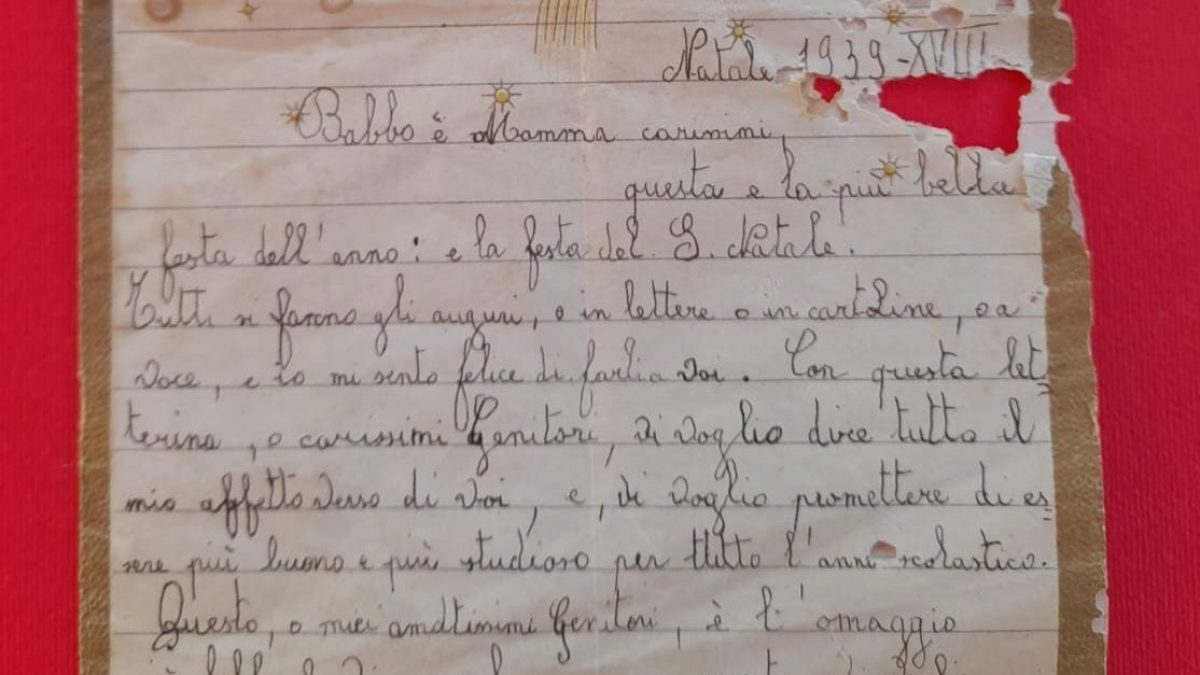 Natale 1939-XVIII
Babbo è Mamma carimimi,
questa e la più bella
festa dell'anno: e la festa del S. Natale.
Tutti si fanno gli auguri, o in lettere o in cartoline, o a
voce, e io mi sento felice di farli a voi. Con questa let=
terina, o carissimi Genitori, vi voglio dire tutto il
mio affetto verso di voi, e, vi voglio promettere di es=
sere più buono e più studioso per tutto l'anni scolastico.
Questo, o miei amatissimi Genitori, è l'omaggio